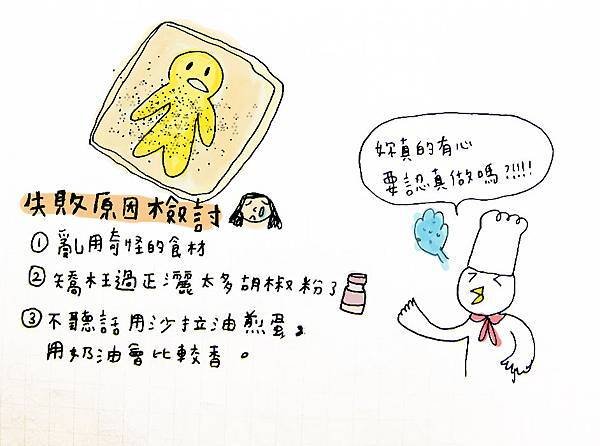 失敗原因檢討
① 亂用奇怪的食材
② 矯枉過正灑太多胡椒粉了
③ 不聽話用沙拉油煎蛋。
用奶油會比較香。
妳真的有心
要認真做嗎?!!!!